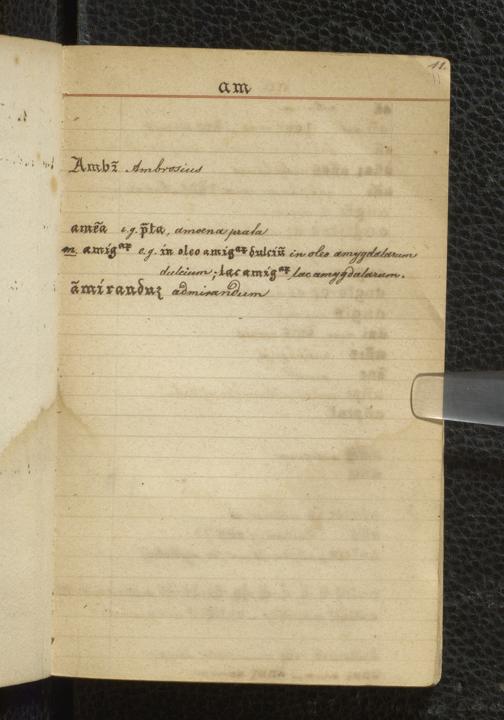 11.
am
Ambꝛ̃ Ambrosius
amẽa e.g. p̃ta, amoena prata
m. amigᵃꝝ e.g. in oleo amigᵃꝝ dulciũ in oleo amygdalarum
dulcium; lac amigᵃꝝ lac amygdalarum.
ãmiranduꝫ admirandum